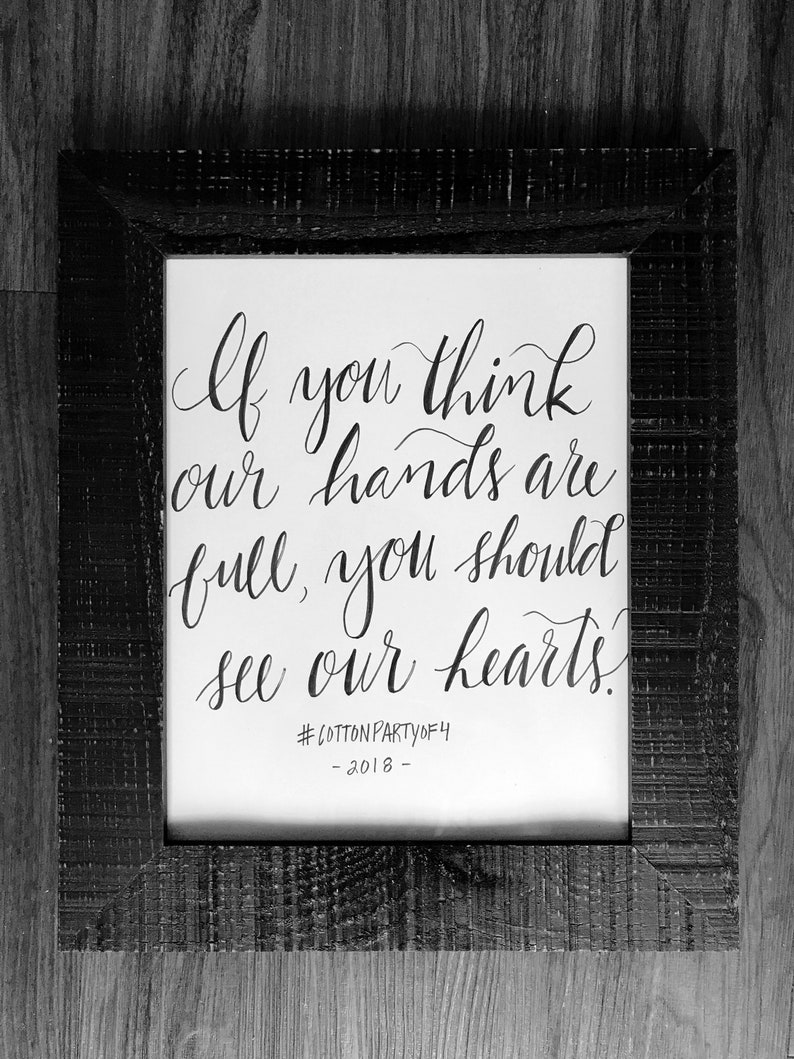 If you think
our hands are
full, you should
see our hearts.
#COTTONPARTYOF4
-2018-